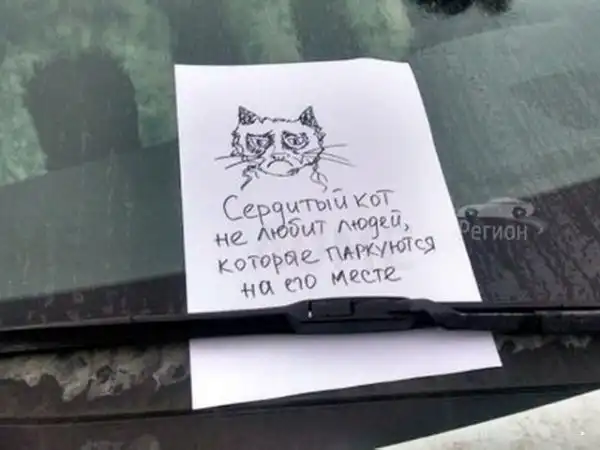 Сердитый кот
не любит людей,
которые паркуются
на его месте
Регион